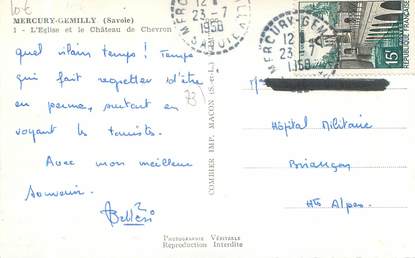 10€
MERCURY-GEMILLY (Savoie)
1 - L'Eglise et le Château de Chevron
MERCURY-GEMILLY
12 H
23 - 7
1958
SAVOIE
MERCURY-GEMILLY
12 H
23 - 7
1958
15F
REPUBLIQUE FRANCAISE
quel vilain temps ! Temps
qui fait regretter d'être
en perme, surtout en
voyant les touristes.
Avec mon meilleur
souvenir.
73
COMBIER IMP. MACON (S.-&-L.)
Hôpital Militaire
Briançon
Htes Alpes.
PHOTOGRAPHIE VÉRITABLE
Reproduction Interdite